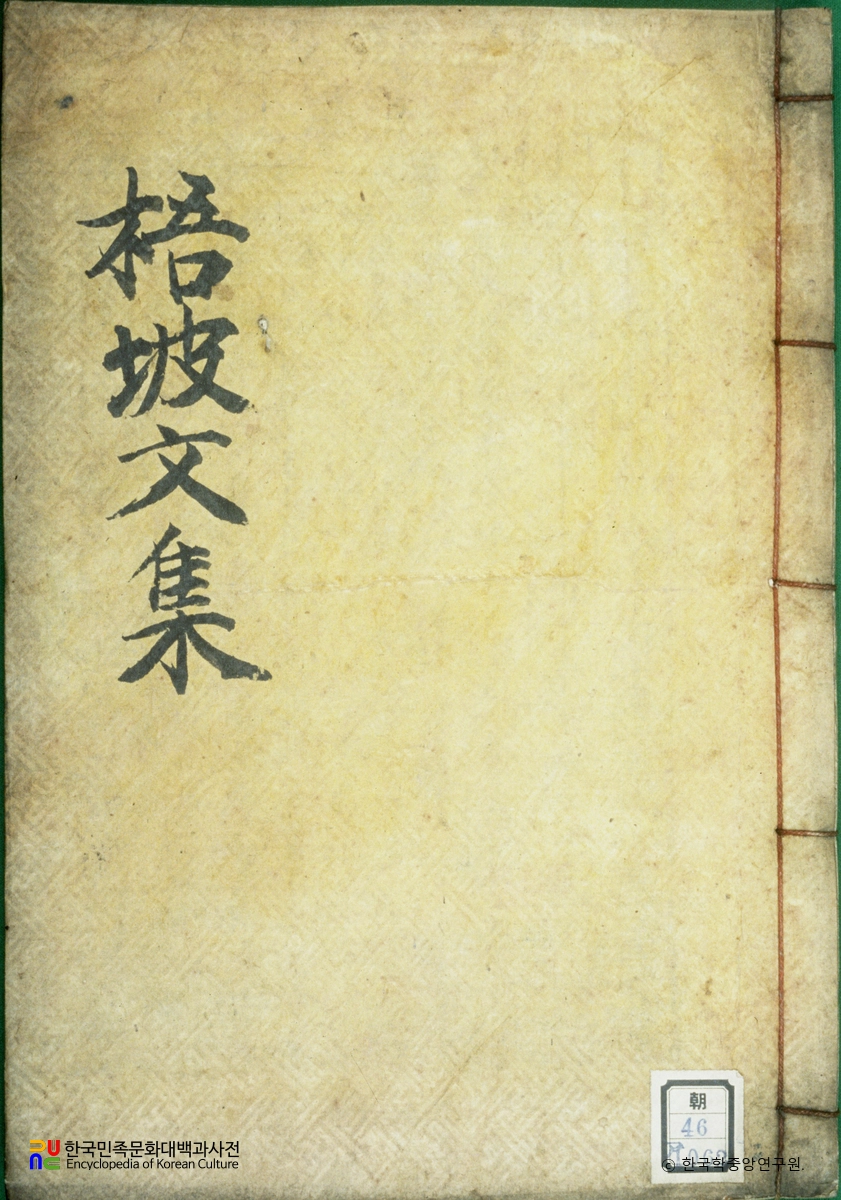 梧坡文集
朝
46
한국민족문화대백과사전
Encyclopedia of Korean Culture
© 한국학중앙연구원.